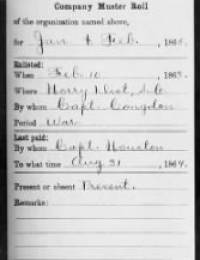 Company Muster Roll
of the organization named above,
for Jan & Feb. , 1865.
Enlisted:
When Feb. 10 , 1865.
Where Horry Dist, S.C.
By whom Capt. Congdon
Period War
Last paid:
By whom Capt. Houston
To what time Aug 31 , 1864.
Present or absent Present.
Remarks: